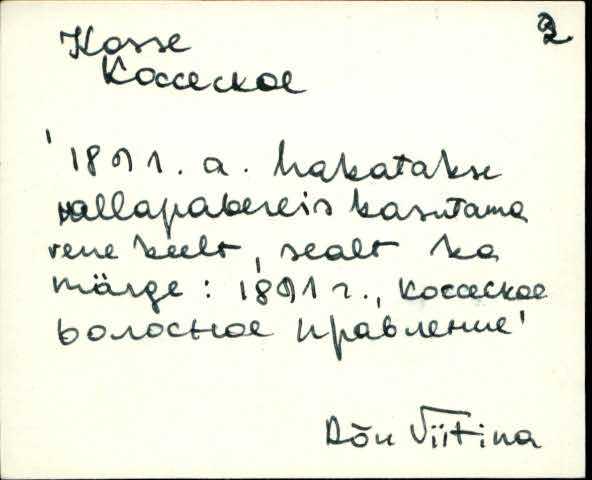 2
Kosse
Коссеское
'1891. a. hakatakse
vallapabereis kasutama
vene keelt, sealt ka
märge: 1891 г., Коссеское
волостное правление'
Rõu Viitina